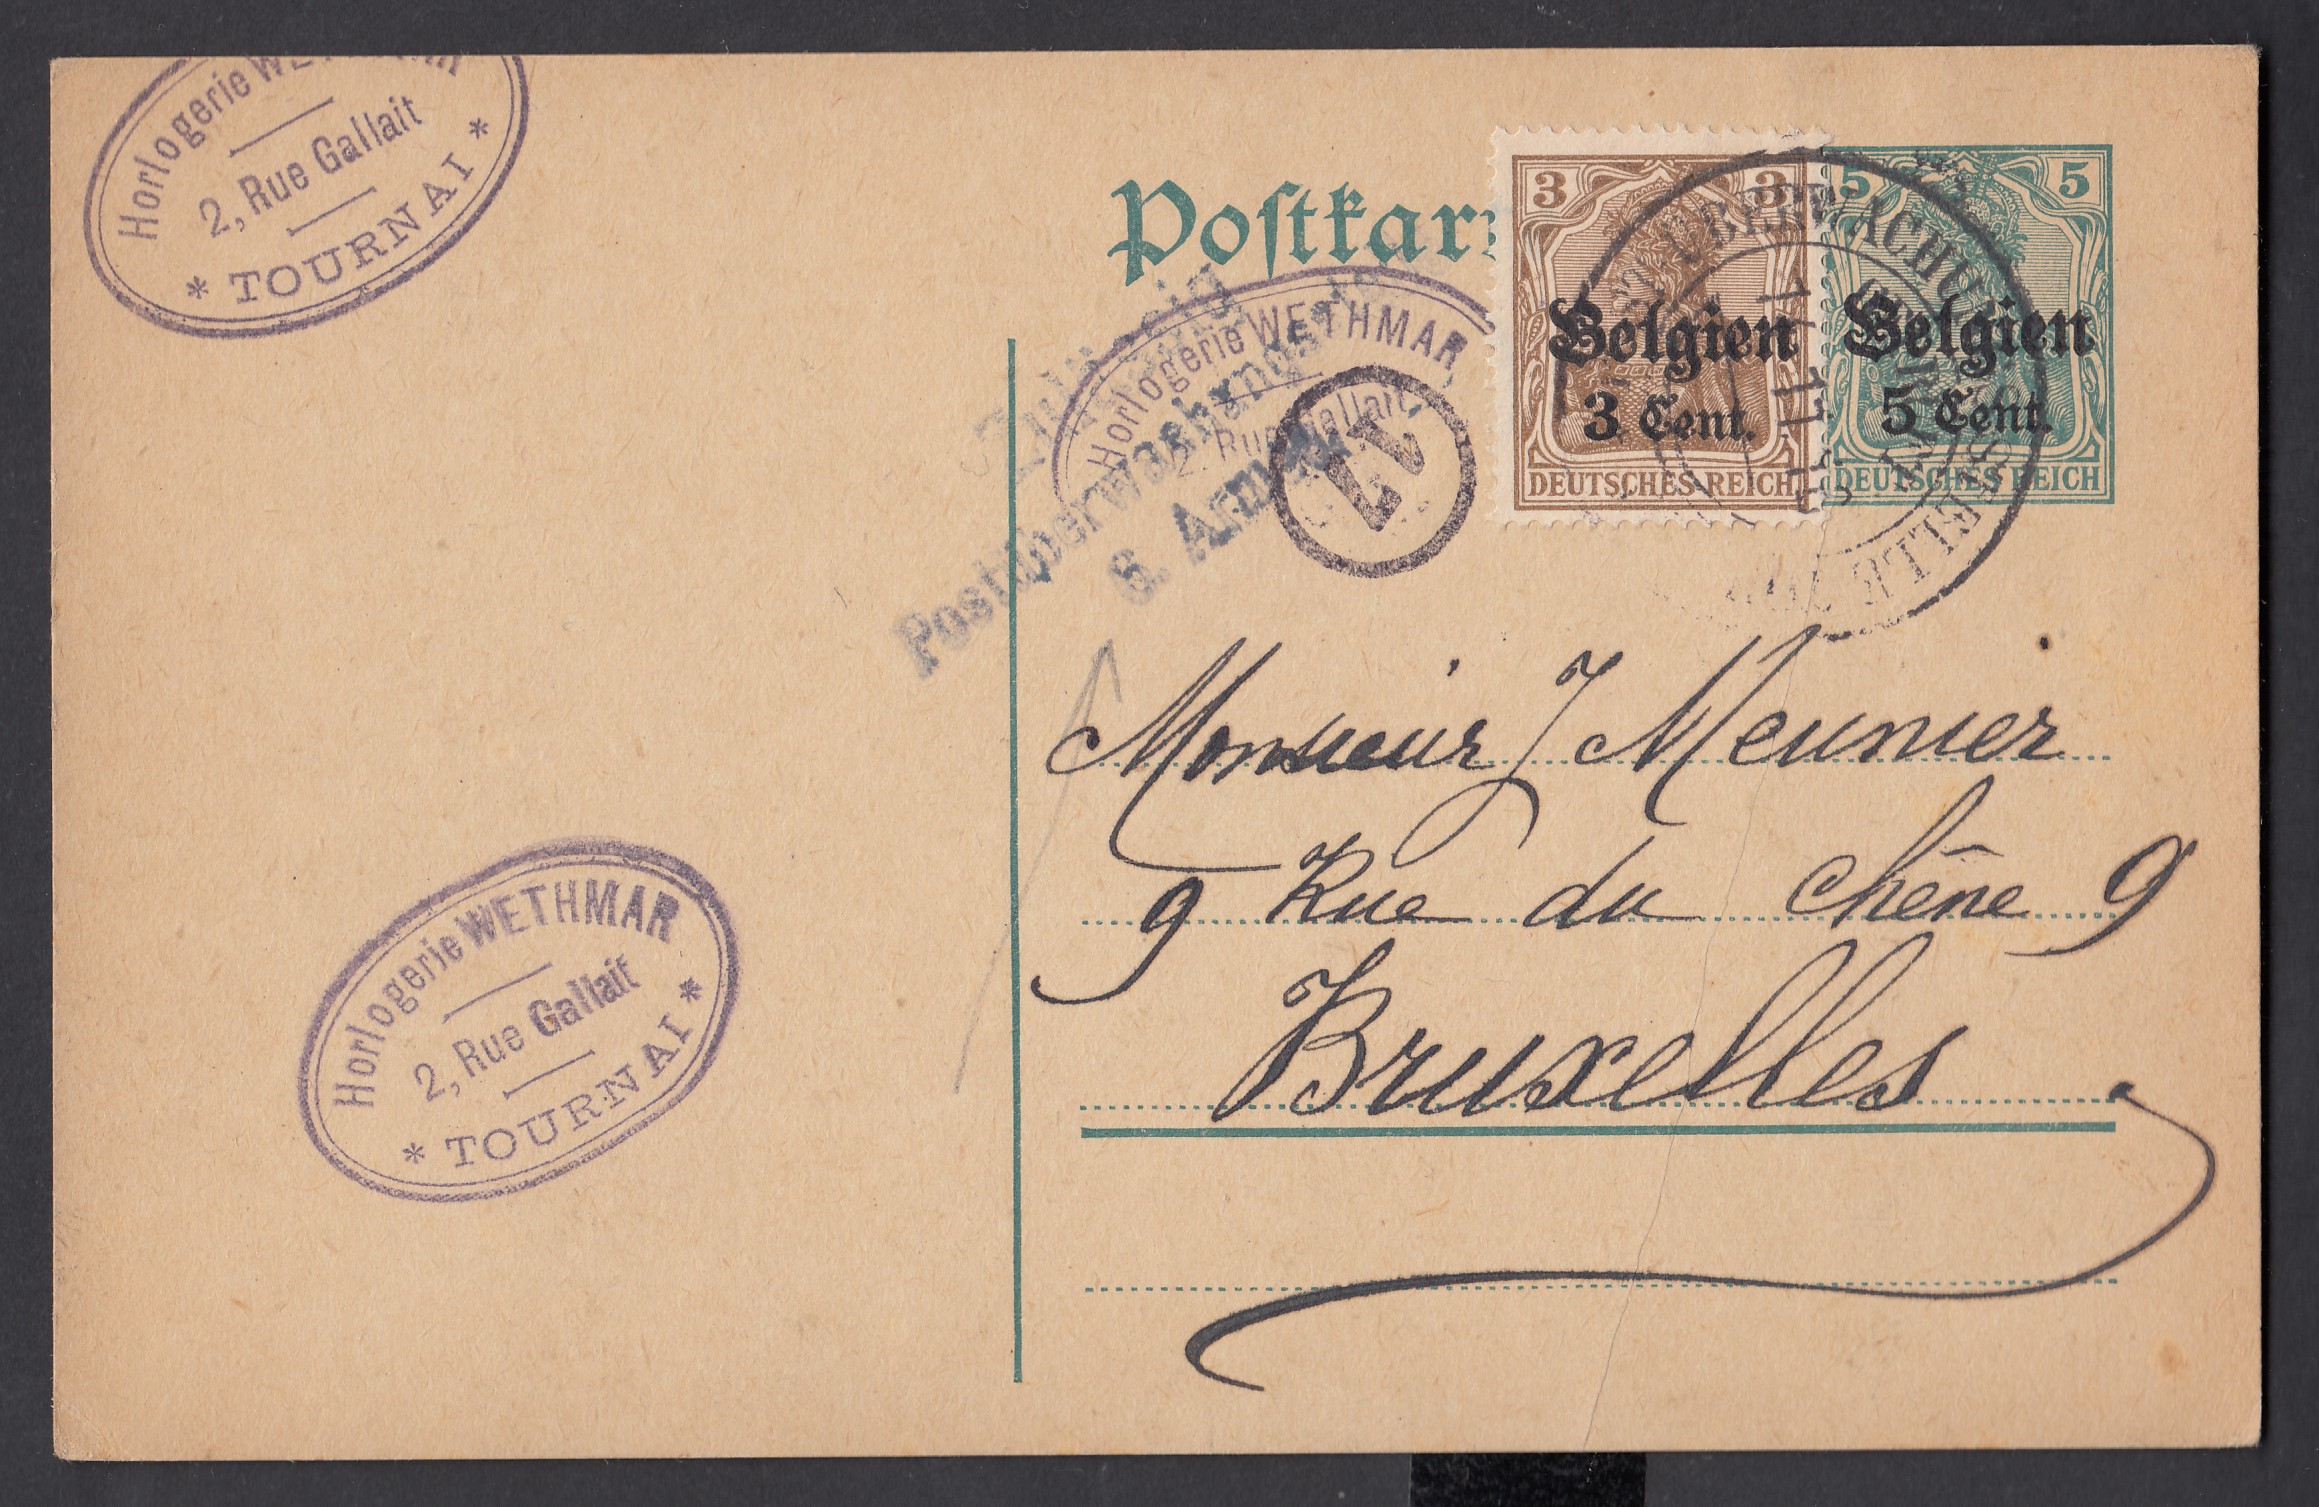 Horlogerie
2, Rue Gallait
* TOURNAI *
Postkar
3 3
Belgien
3 Cent.
DEUTSCHES REICH
5 5
Belgien
5 Cent.
DEUTSCHES REICH
Horlogerie WETHMAR
2, Rue Gallait
Postüberwachung
6. Armee
Monsieur J Meunier
9 Rue du Chêne 9
Bruxelles
Horlogerie WETHMAR
2, Rue Gallait
* TOURNAI *